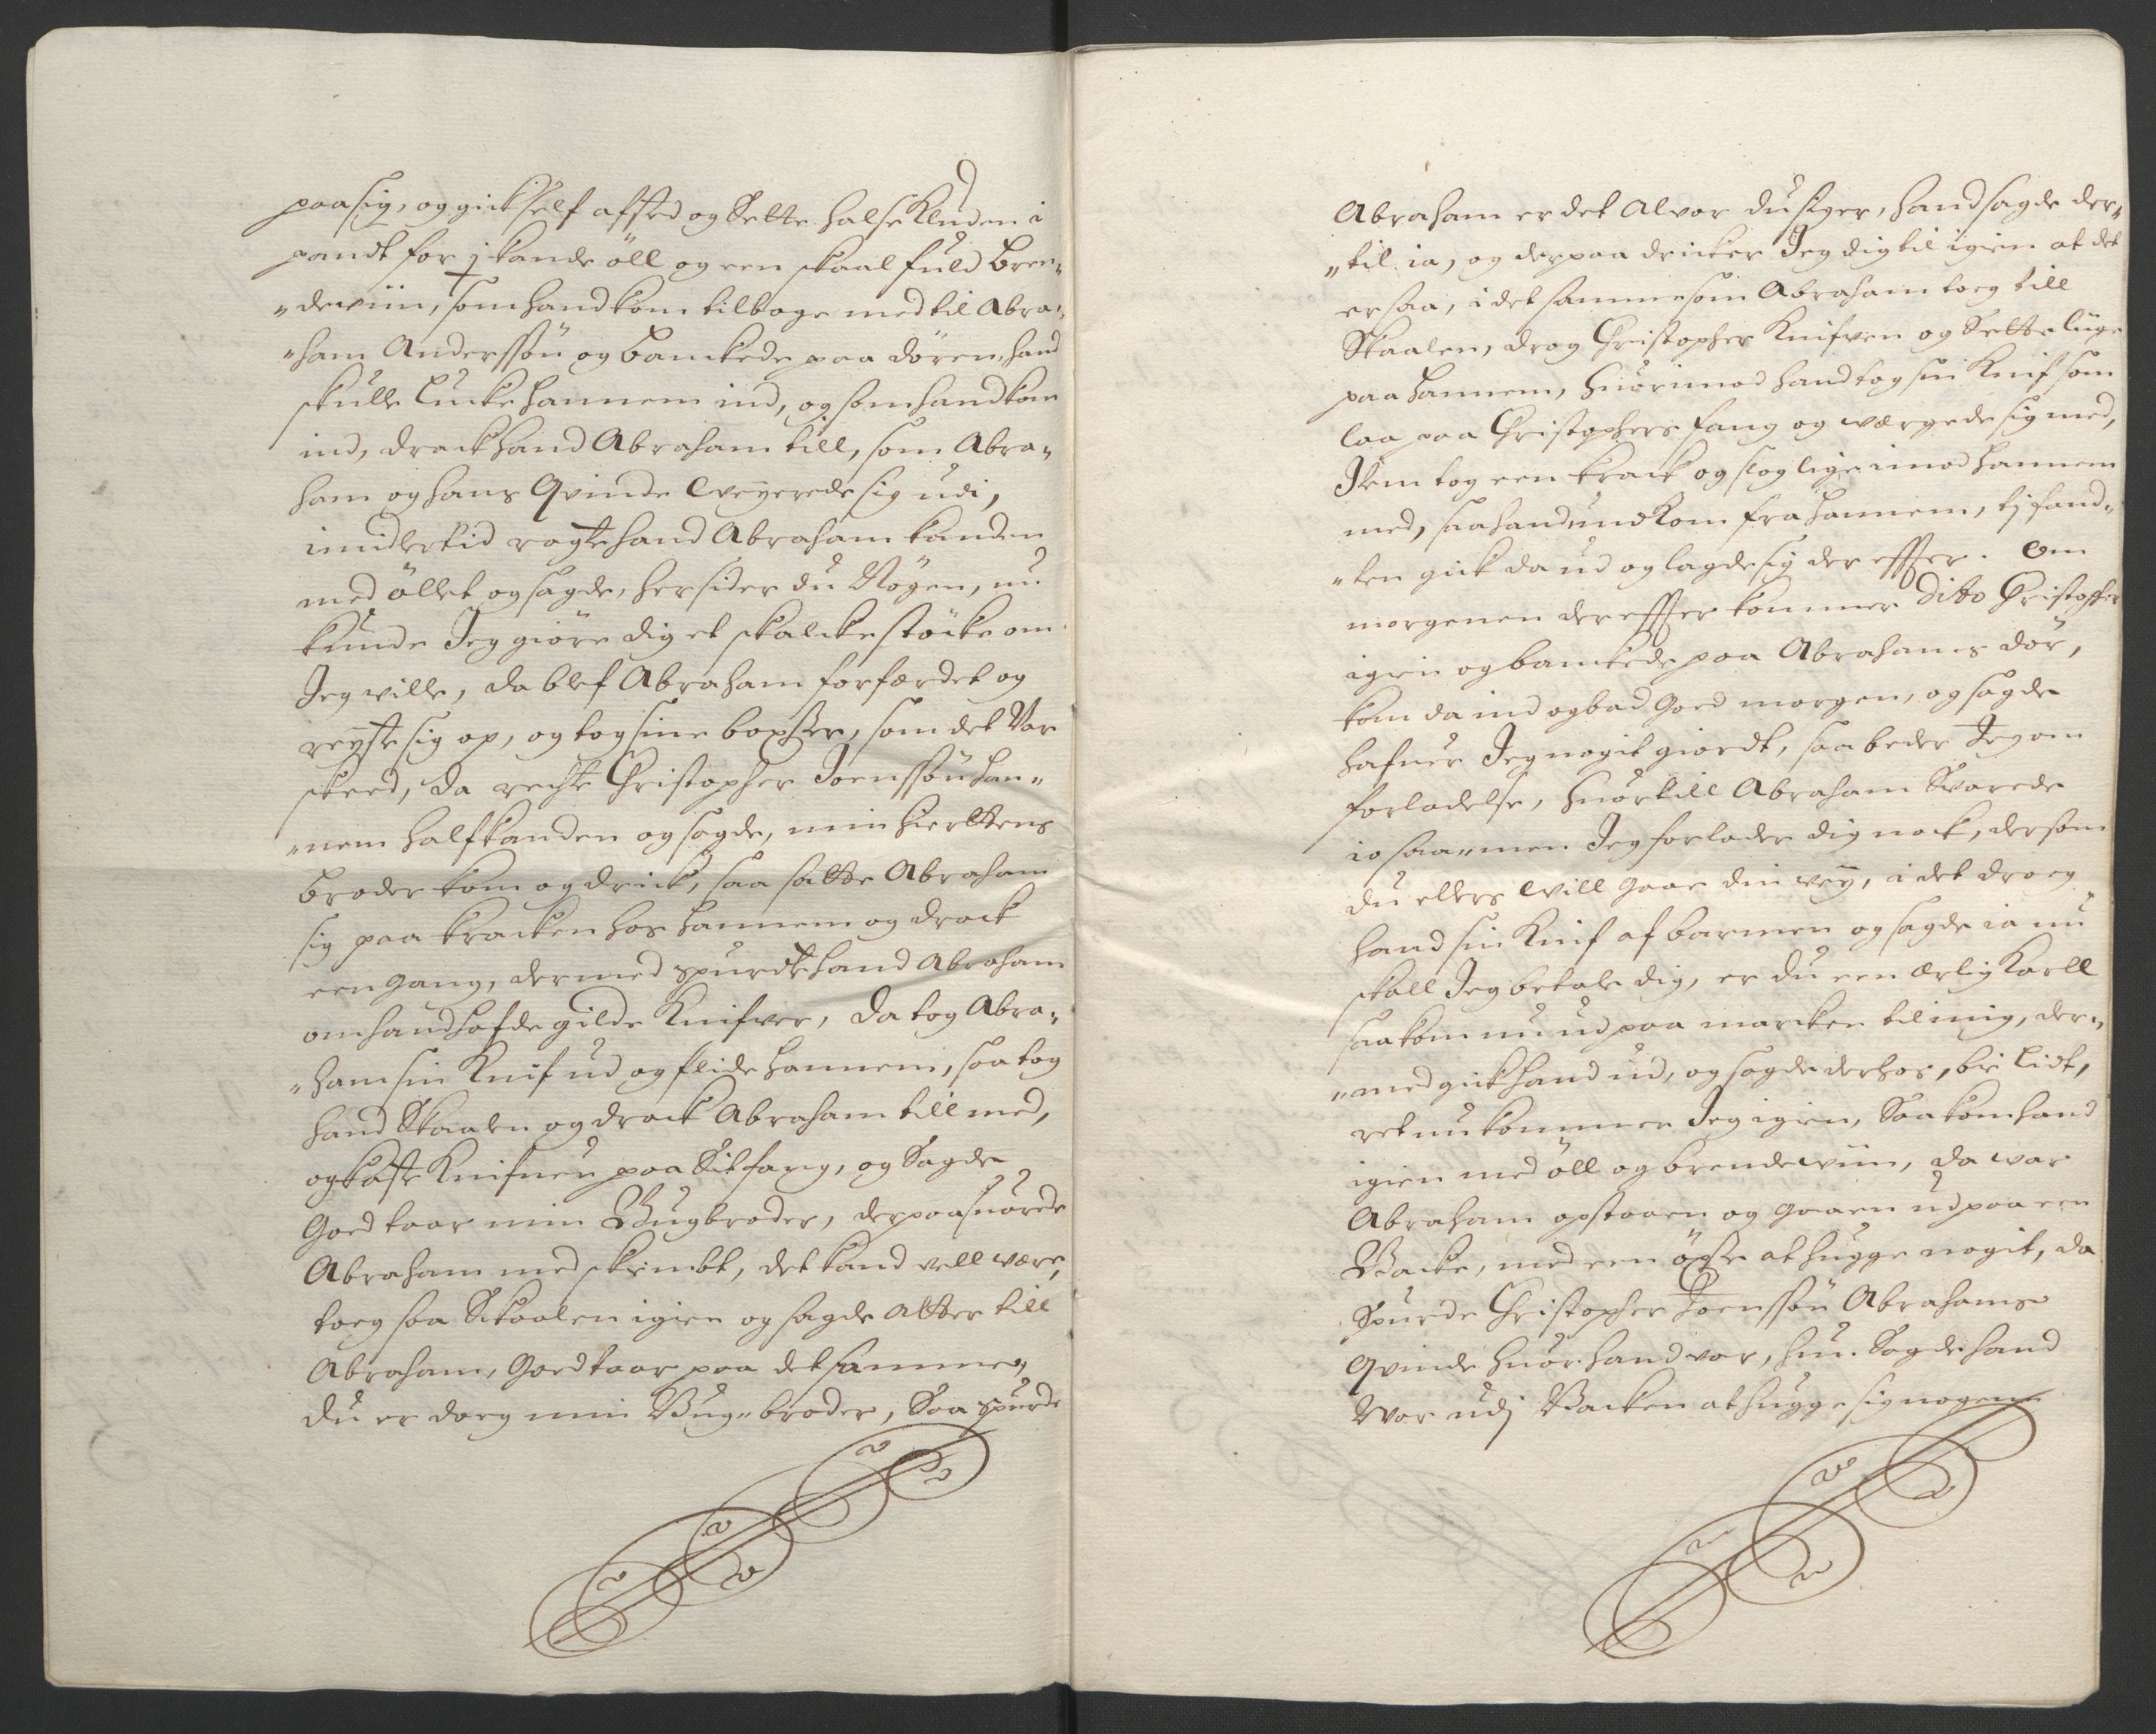 paa sig, og gick self afsted og Sette halsKluden i
pandt for j kande öll og een skaal fuld bren„
„dewiin, som hand kom tilbage med til Abra„
„ham Anderssøn og banckede paa dören, hand
skulle lucke hannem ind, og som hand kom
ind, drack hand Abraham till, som Abra„
ham og hans Qvinde weyerede sig udi,
imidlertid ragte hand Abraham kanden
med öllet og sagde, her sider du Nögen, nu
kunde Jeg giöre dig et skalcke støcke om
Jeg wille, da blef Abraham forfærdet og
reyste sig op, og tog sine boxser, som det Var
skeed, da reckte Christopher Joenssøn han„
„nem halfkanden og sagde, min hierttens
broder kom og drick, saa satte Abraham
sig paa kracken hos hannem og drack
een gang, dermed spurdte hand Abraham
om hand hafde gilde Knifver, da tog Abra„
„ham sin Knif ud og flide hannem, saa tog
hand Skaalen og drack Abraham till med,
og kaste Knifven paa Sit fang, og Sagde
Goed taar min Bugbroder, derpaa suarede
Abraham med skimbt, det kand vell være,
toeg saa Skaalen igien og sagde atter till
Abraham, Goed taar paa det samme,
du er doeg min Bug„broder, Saa spurde
Abraham er det Alvor du siger, hand sagde der„
„til ia, og derpaa dricker Jeg dig til igien at det
er saa, i det samme som Abraham toeg till
Skaalen, drog Christopher Knifven og Sette lige
paa hannem, huorimod hand tog sin Knif som
laa paa Christophers fang og wærgede sig med,
Item tog een krack og slog lige imod hannem
med, saa hand undkom fra hannem, fand„
„ten gick da ud og lagde sig der effter. Om
morgenen der effter kommer ditto Christopher
igien og banckede paa Abrahams dör,
kom da ind og bad Goed morgen, og sagde
hafuer Jeg nogit giordt, saa beder Jeg om
forladelse, huortill Abraham Svarede
io saa men Jeg forlader dig nock, dersom
du ellers will gaae din vey, i det droeg
hand sin Knif af barmen og sagde ia nu
skall Jeg betale dig, er du een ærlig Karll
saa kom nu ud paa marcken til mig, der„
„med gick hand ud, og sagde derhos, bie lidt,
ret nu kommer Jeg igien, Saa kom hand
igien med öll og brendewiin, da war
Abraham opstaaen og gaaen ud paa een
Backe, med een öxse at hugge nogit, da
Spurde Christopher Joenssøn Abrahams
Qvinde huor hand var, hun Sagde hand
War udj Backen at hugge sig nogen